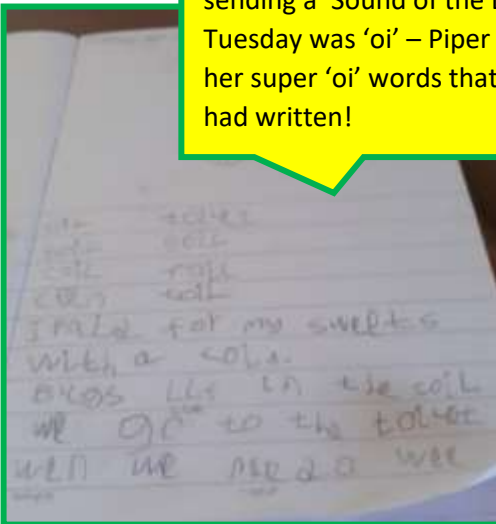 sending a 'Sound of the
Tuesday was 'oi' – Piper
her super 'oi' words that
had written!
oil toilet
soil boil
coil
coin
I paid for my sweets
with a coin.
Bugs in the soil
we go to the toilet
wen we need a wee